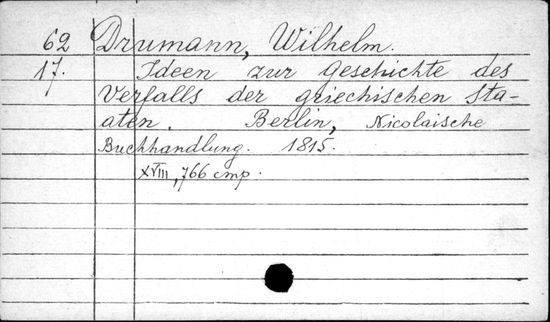 62 Drumann, Wilhelm.
17. Ideen zur Geschichte des
Verfalls der griechischen Sta-
aten. Berlin, Nicolaische
Buchhandlung. 1815.
XVIII, 766 стр.